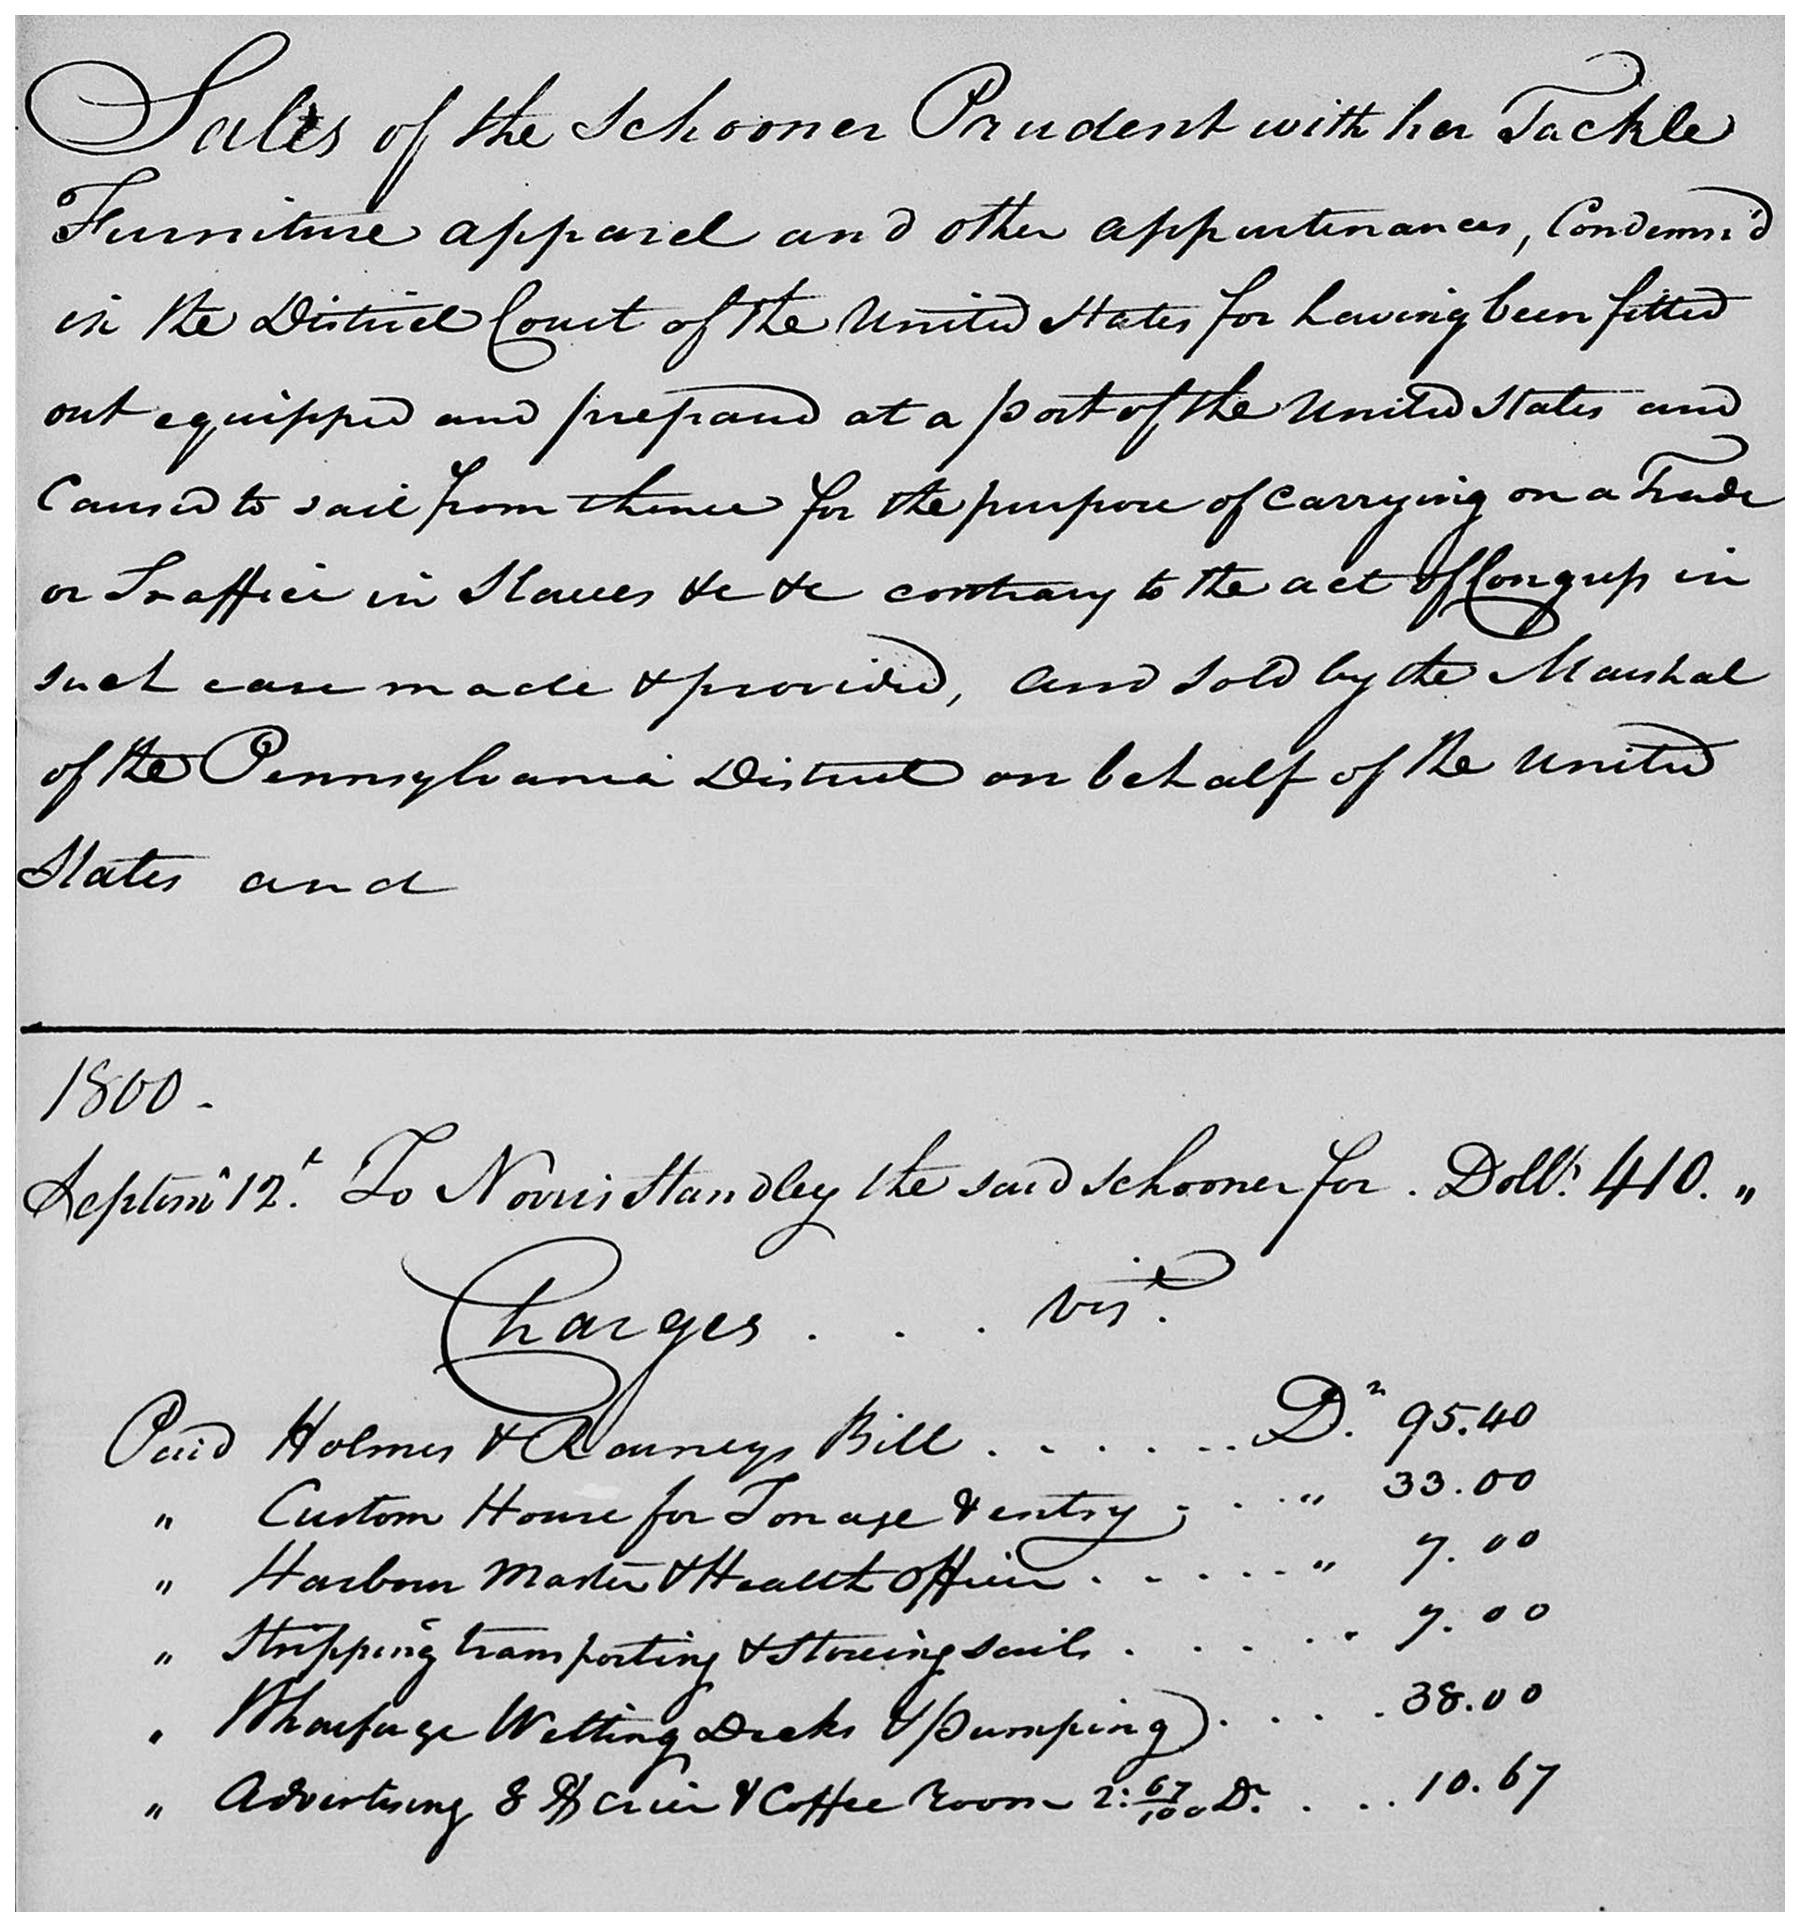 Sales of the Schooner Prudent with her Tackle
Furniture apparel and other appurtenances, Condemn'd
in the District Court of the United States for having been fitted
out equipped and prepared at a port of the United States and
Caused to sail from thence for the purpose of carrying on a Trade
or Traffic in Slaves &c &c contrary to the act of Congress in
such case made & provided, and sold by the Marshal
of the Pennsylvania District on behalf of the United
States and
1800.
Septemr 12t. To Norris Standley the said schooner for . Dolls. 410. "
Charges . . . vizt.
Paid Holmes & Raineys Bill . . . . . . Drs. 95.40
" Custom House for Tonage & entry . . . " 33.00
" Harbour Master & Health Officer . . . . . " 7.00
" Stripping transporting & Stowing sails . . . . . 7.00
" Wharfage Wetting Decks & pumping . . . . 38.00
" Advertising 8 Drs Crier & Coffee room 2:67/100 Dr. . . . 10.67